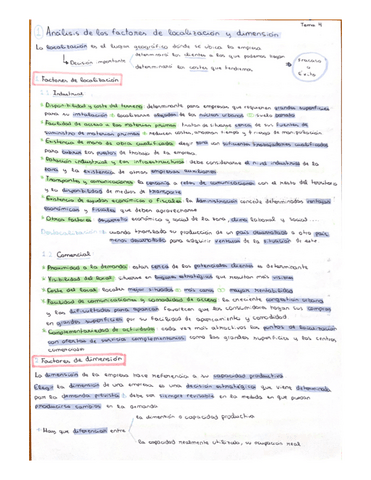 Tema 4
1 Análisis de los factores de localización y dimensión
La localización es el lugar geográfico donde se ubica la empresa
Decisión importante
determinará los clientes a los que podemos llegar
determinará los costes que tendremos
Fracaso o Éxito
1. Factores de localización
1.1 Industrial
Disponibilidad y coste del terreno determinante para empresas que requieren grandes superficies
para su instalación localizadas alejadas de los núcleos urbanos suelo barato
Facilidad de acceso a las materias primas tratan de situarse cerca de sus fuentes de
suministro de materias primas reducen costes, ahorran tiempo y trabajo de transportación
Existencia de mano de obra cualificada elegir para los trabajadores cualificados
para cubrir los puestos de trabajo de la empresa
Dotación industrial y las infraestructuras debe considerarse el nivel industrial de la
zona y la existencia de otras empresas auxiliares
Transportes y comunicaciones la cercanía a redes de comunicaciones con el resto del territorio
y la disponibilidad de medios de transporte
Existencia de ayudas económicas o fiscales la administración concede determinadas ventajas
económicas y fiscales que deben aprovecharse
Otros factores desarrollo económico y social de la zona, clima laboral y social...
cuando trasladan su producción de un país desarrollado a otro país
menos desarrollado para adquirir ventajas de la situación de este
1.2 Comercial
Proximidad a la demanda estar cerca de los potenciales clientes es determinante
Visibilidad del local situarse en lugares estratégicos que resulten más visibles
Coste del local locales mejor situados más caros mayor rentabilidad
Facilidad de comunicaciones y comodidad de acceso la creciente congestión urbana
y las dificultades para aparcar favorecen que los consumidores hagan sus compras
en grandes superficies por su facilidad de aparcamiento y comodidad
Complementariedad de actividades cada vez más atractivos los puntos de localización
con ofertas de servicio complementarios como las grandes superficies y los centros
comerciales
2. Factores de dimensión
La dimensión de la empresa hace referencia a su capacidad productiva
Elegir la dimensión de una empresa es una decisión estratégica que viene determinada
por la demanda prevista debe ser siempre revisable en la medida en que puedan
producirse cambios en la demanda
la dimensión o capacidad productiva
Hay que diferenciar entre
la capacidad realmente utilizada, su ocupación real